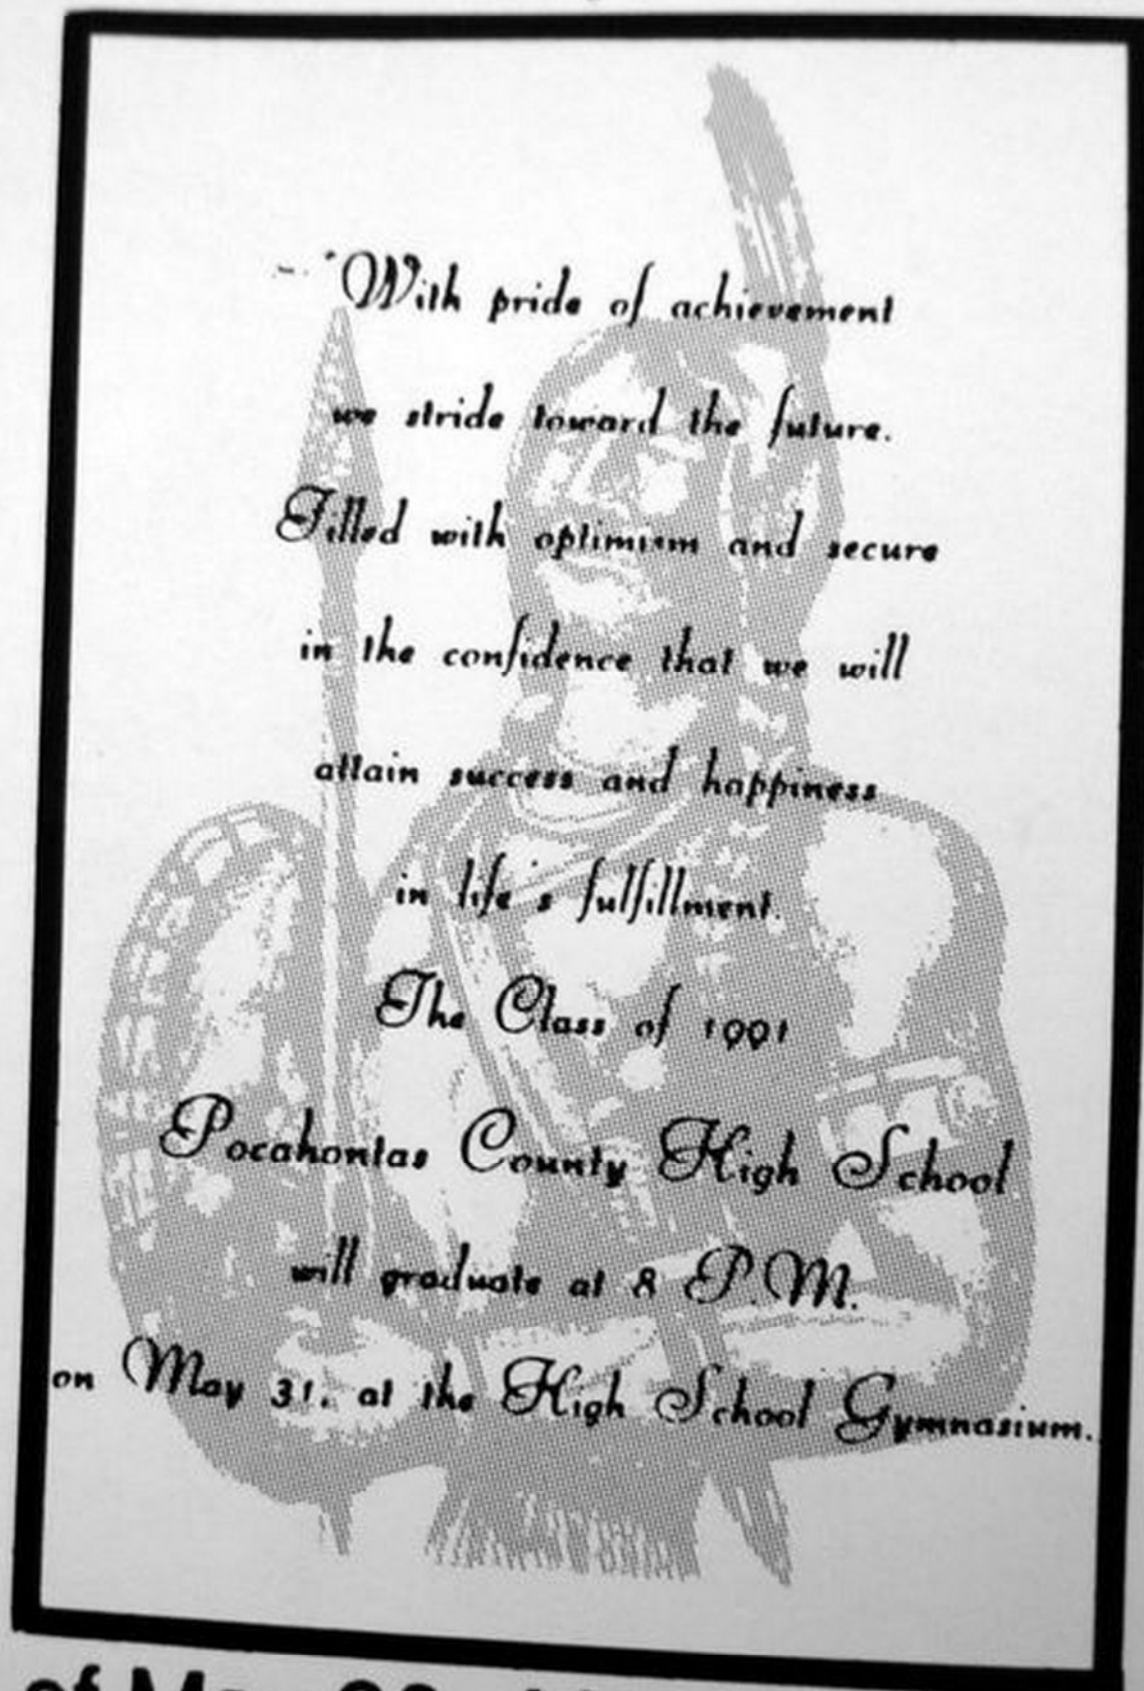 With pride of achievement
we stride toward the future.
Filled with optimism and secure
in the confidence that we will
attain success and happiness
in life's fulfillment.
The Class of 1991
Pocahontas County High School
will graduate at 8 P.M.
on May 31, at the High School Gymnasium.
of